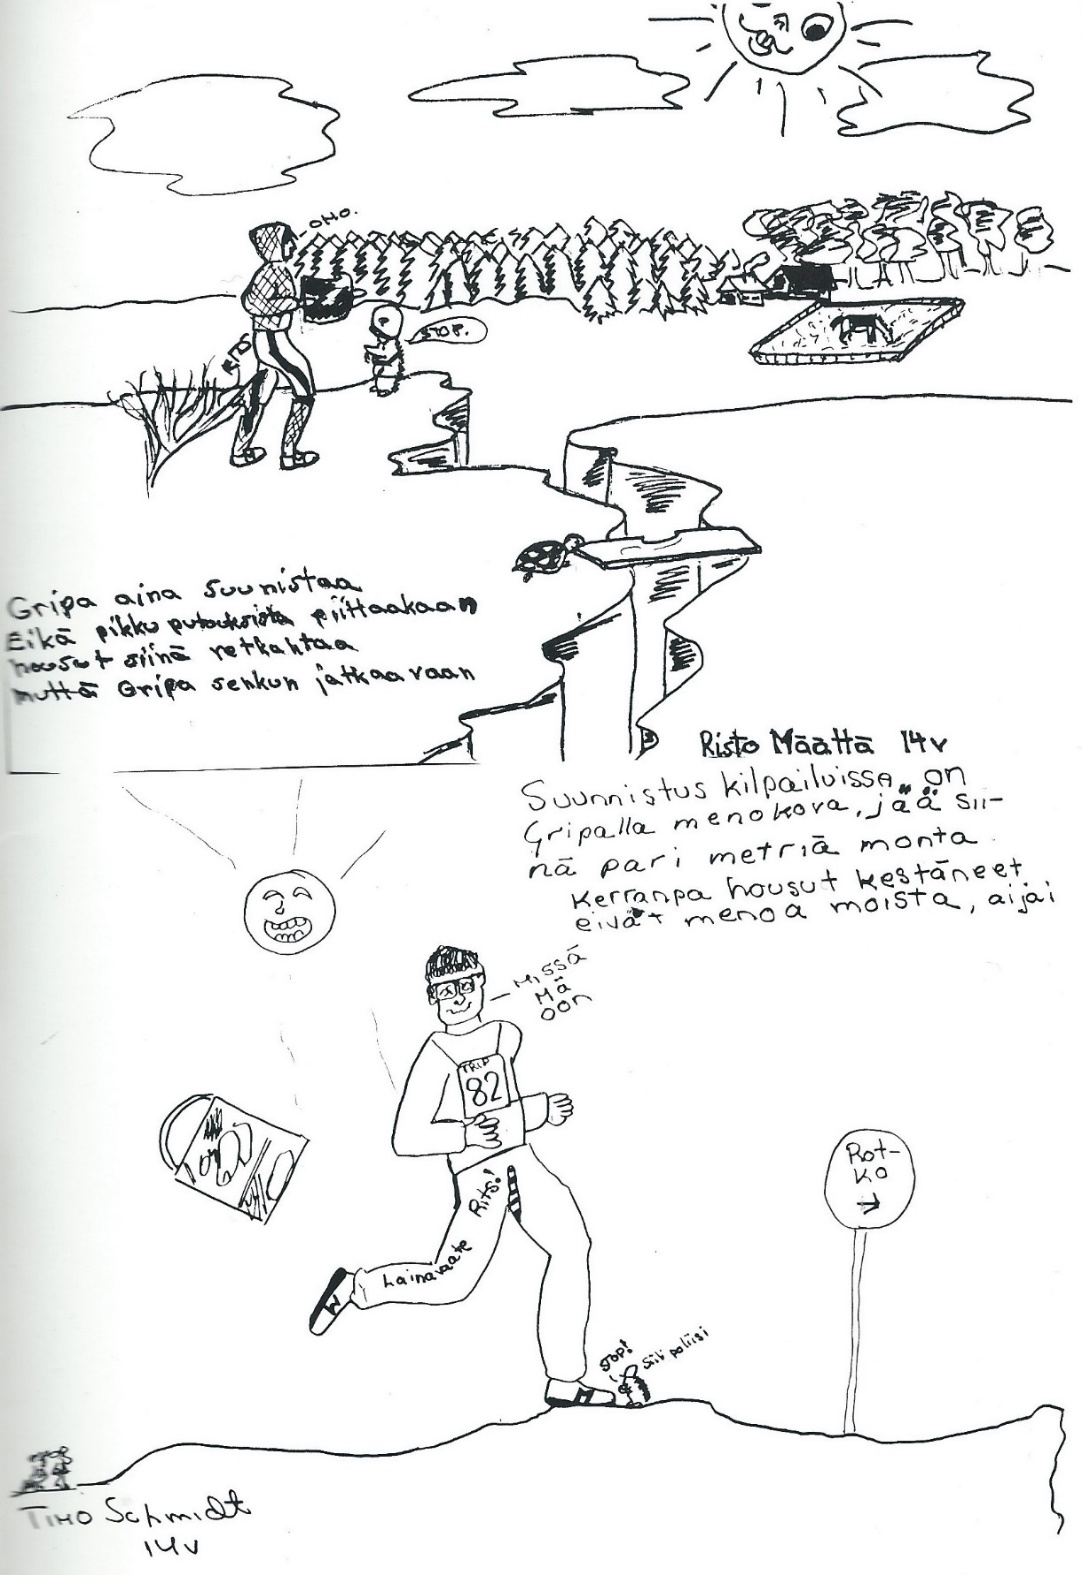 OHO.
STOP.
Gripa aina suunistaa
Eikä pikku putouksista piittaakaan
housut siinä retkahtaa
mutta Gripa senkun jatkaa vaan
Risto Määttä 14v
Suunnistus kilpailuissa on
Gripalla meno kova, jää sii-
nä pari metriä monta
kerranpa housut kestäneet
eivät menoa moista, aijai
MISSÄ
MÄ
OON
TRIP
82
Rits!
Lainavaate
Rot-
ko
STOP!
Siili poliisi
TIMO Schmidt
14v